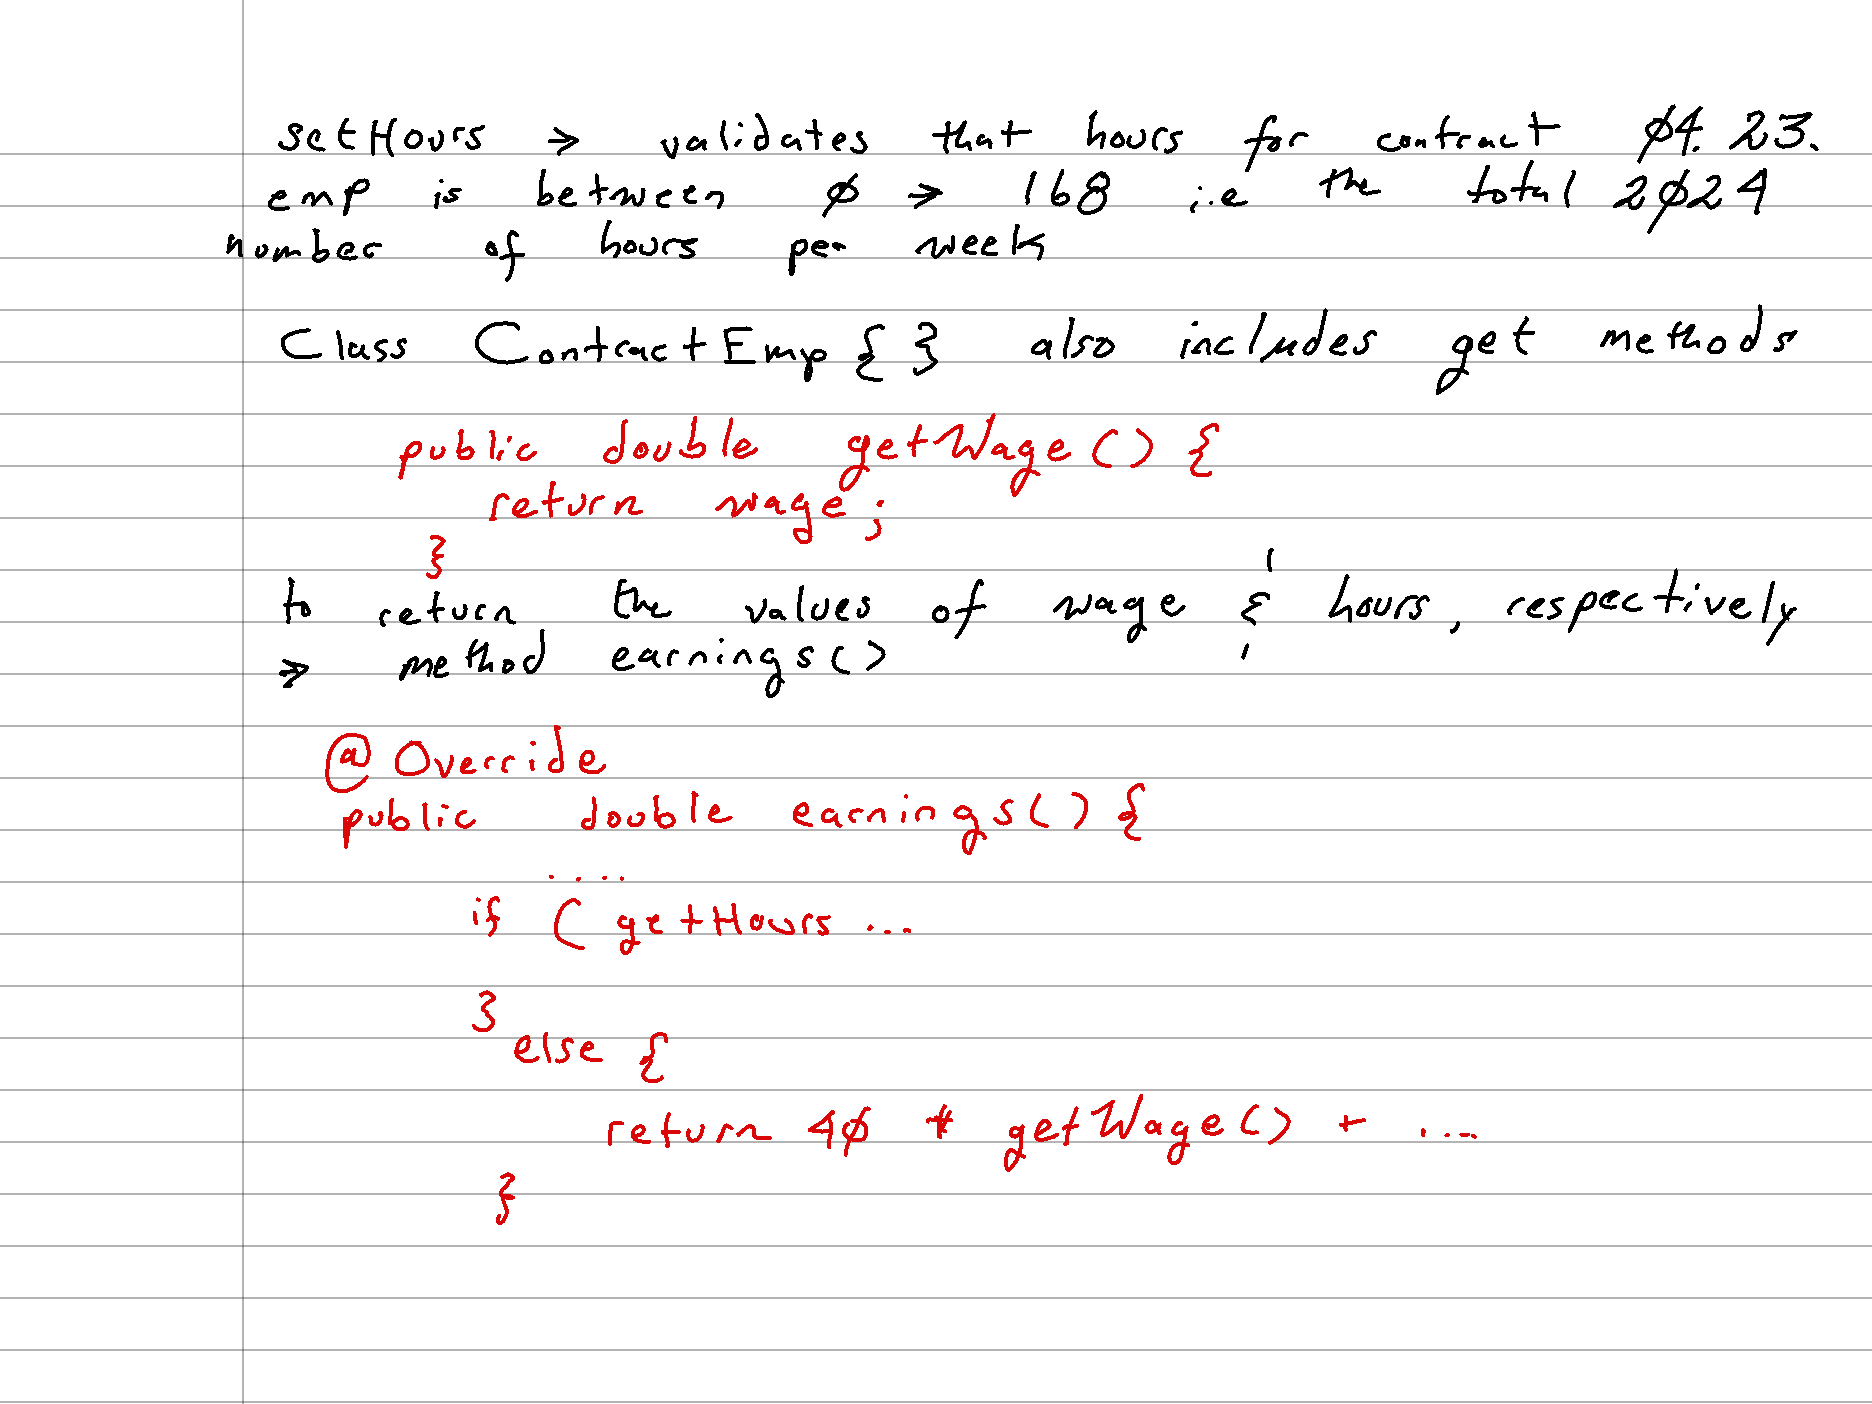 setHours → validates that hours for contract 04.23.
emp is between 0 → 168 i.e the total 2024
number of hours per week
Class ContractEmp { } also includes get methods
public double getWage() {
return wage;
}
to return the values of wage & hours, respectively
→ method earnings()
@Override
public double earnings() {
....
if ( getHours ...
}
else {
return 40 * getWage() + ....
}